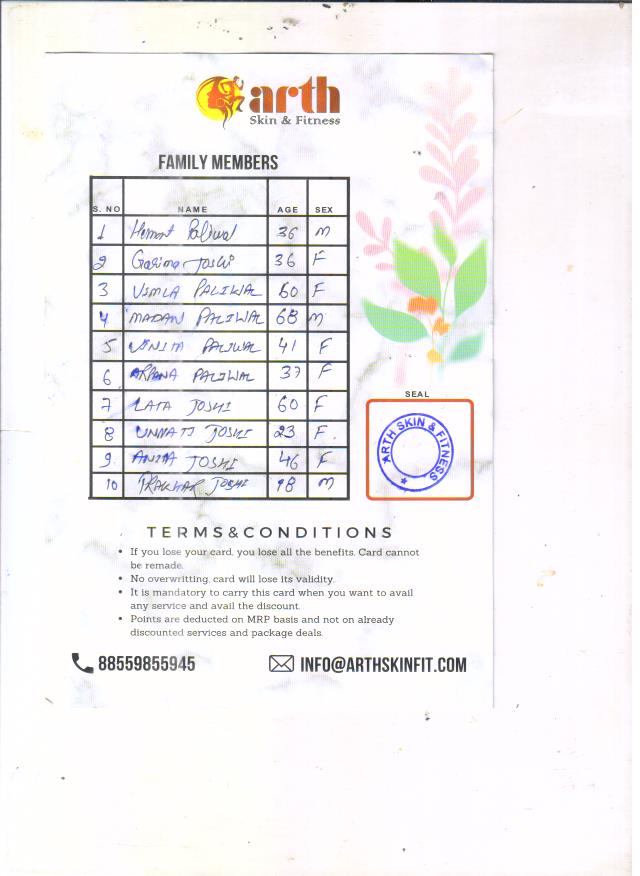 arth
Skin & Fitness
FAMILY MEMBERS
S. NO NAME AGE SEX
1 Hemant Paliwal 36 M
2 Garima Joshi 36 F
3 VIMLA PALIWAL 60 F
4 MADAN PALIWAL 68 M
5 PALIWAL 41 F
6 ARPANA PALIWAL 37 F
7 LATA JOSHI 60 F
8 UNNATI JOSHI 23 F.
9 ANITA JOSHI 46 F
10 PRAKHAR JOSHI 18 M
SEAL
ARTH SKIN & FITNESS
TERMS&CONDITIONS
• If you lose your card, you lose all the benefits. Card cannot
be remade.
• No overwritting, card will lose its validity.
• It is mandatory to carry this card when you want to avail
any service and avail the discount.
• Points are deducted on MRP basis and not on already
discounted services and package deals.
88559855945 INFO@ARTHSKINFIT.COM